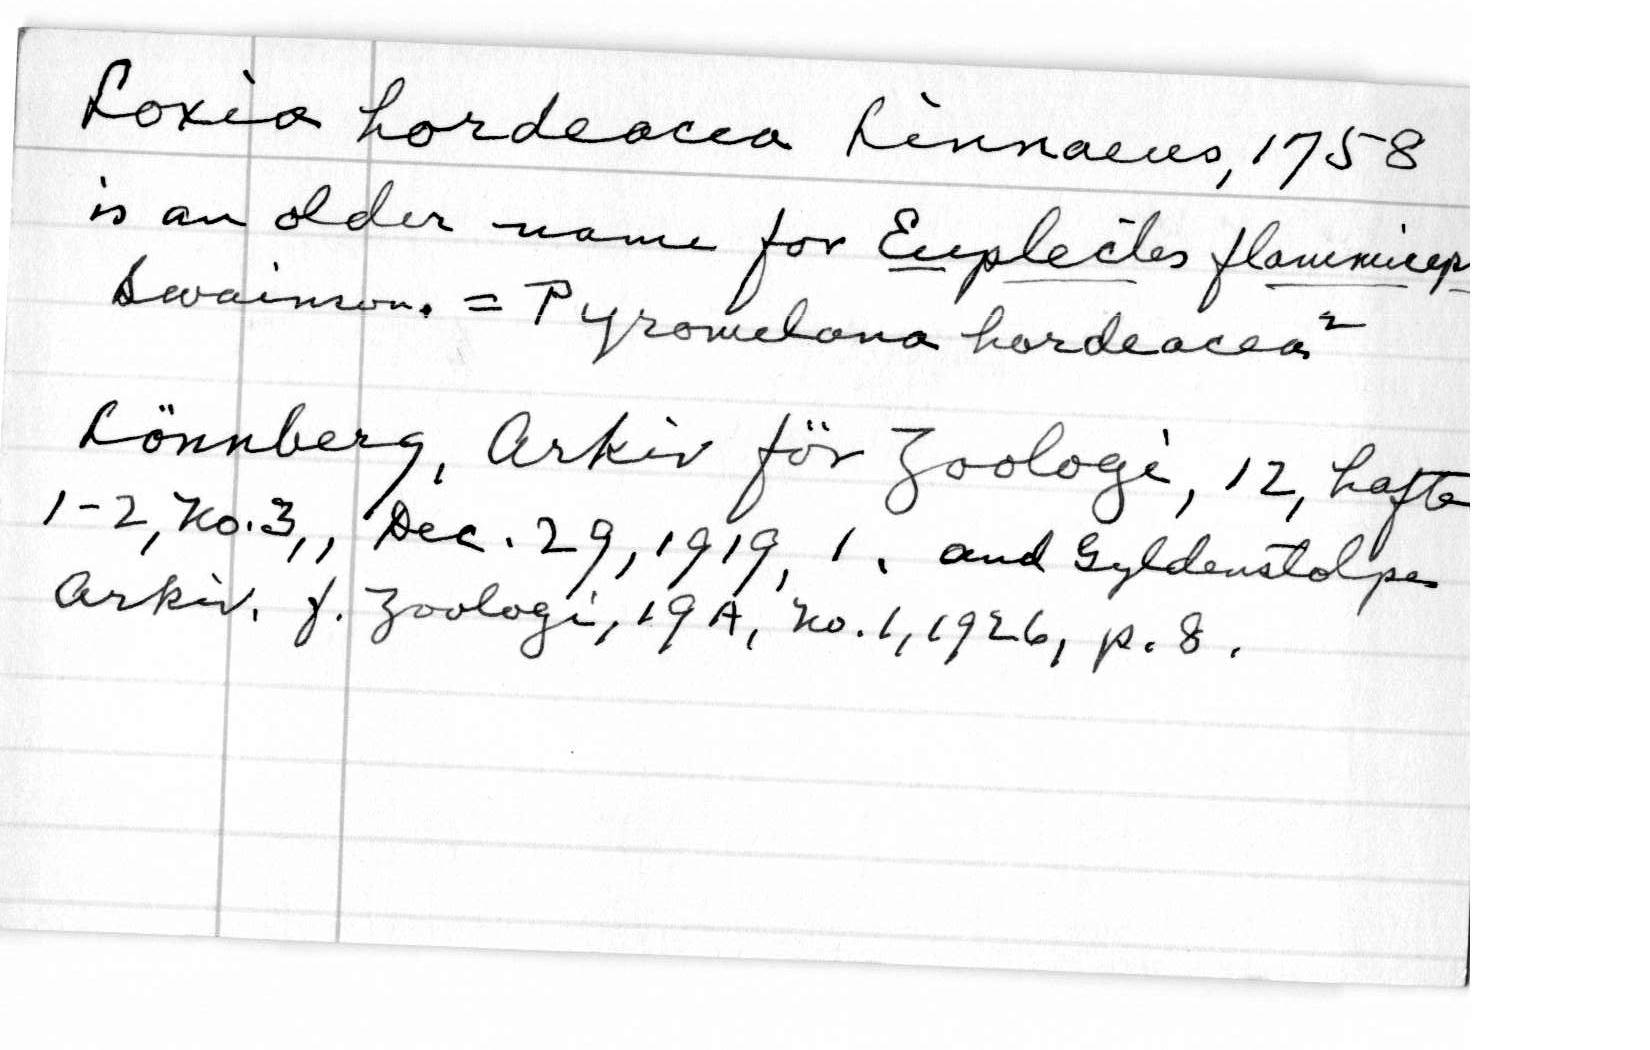 Loxia hordeacea Linnaeus, 1758
is an older name for Euplectes flammicep
Swainson. = Pyromelana hordeacea²
Lönnberg, Arkiv för Zoologi, 12, hafte
1-2, No. 3,, Dec. 29, 1919, 1. and Gyldenstolpe
Arkiv. f. Zoologi, 19A, No. 1, 1926, p. 8.